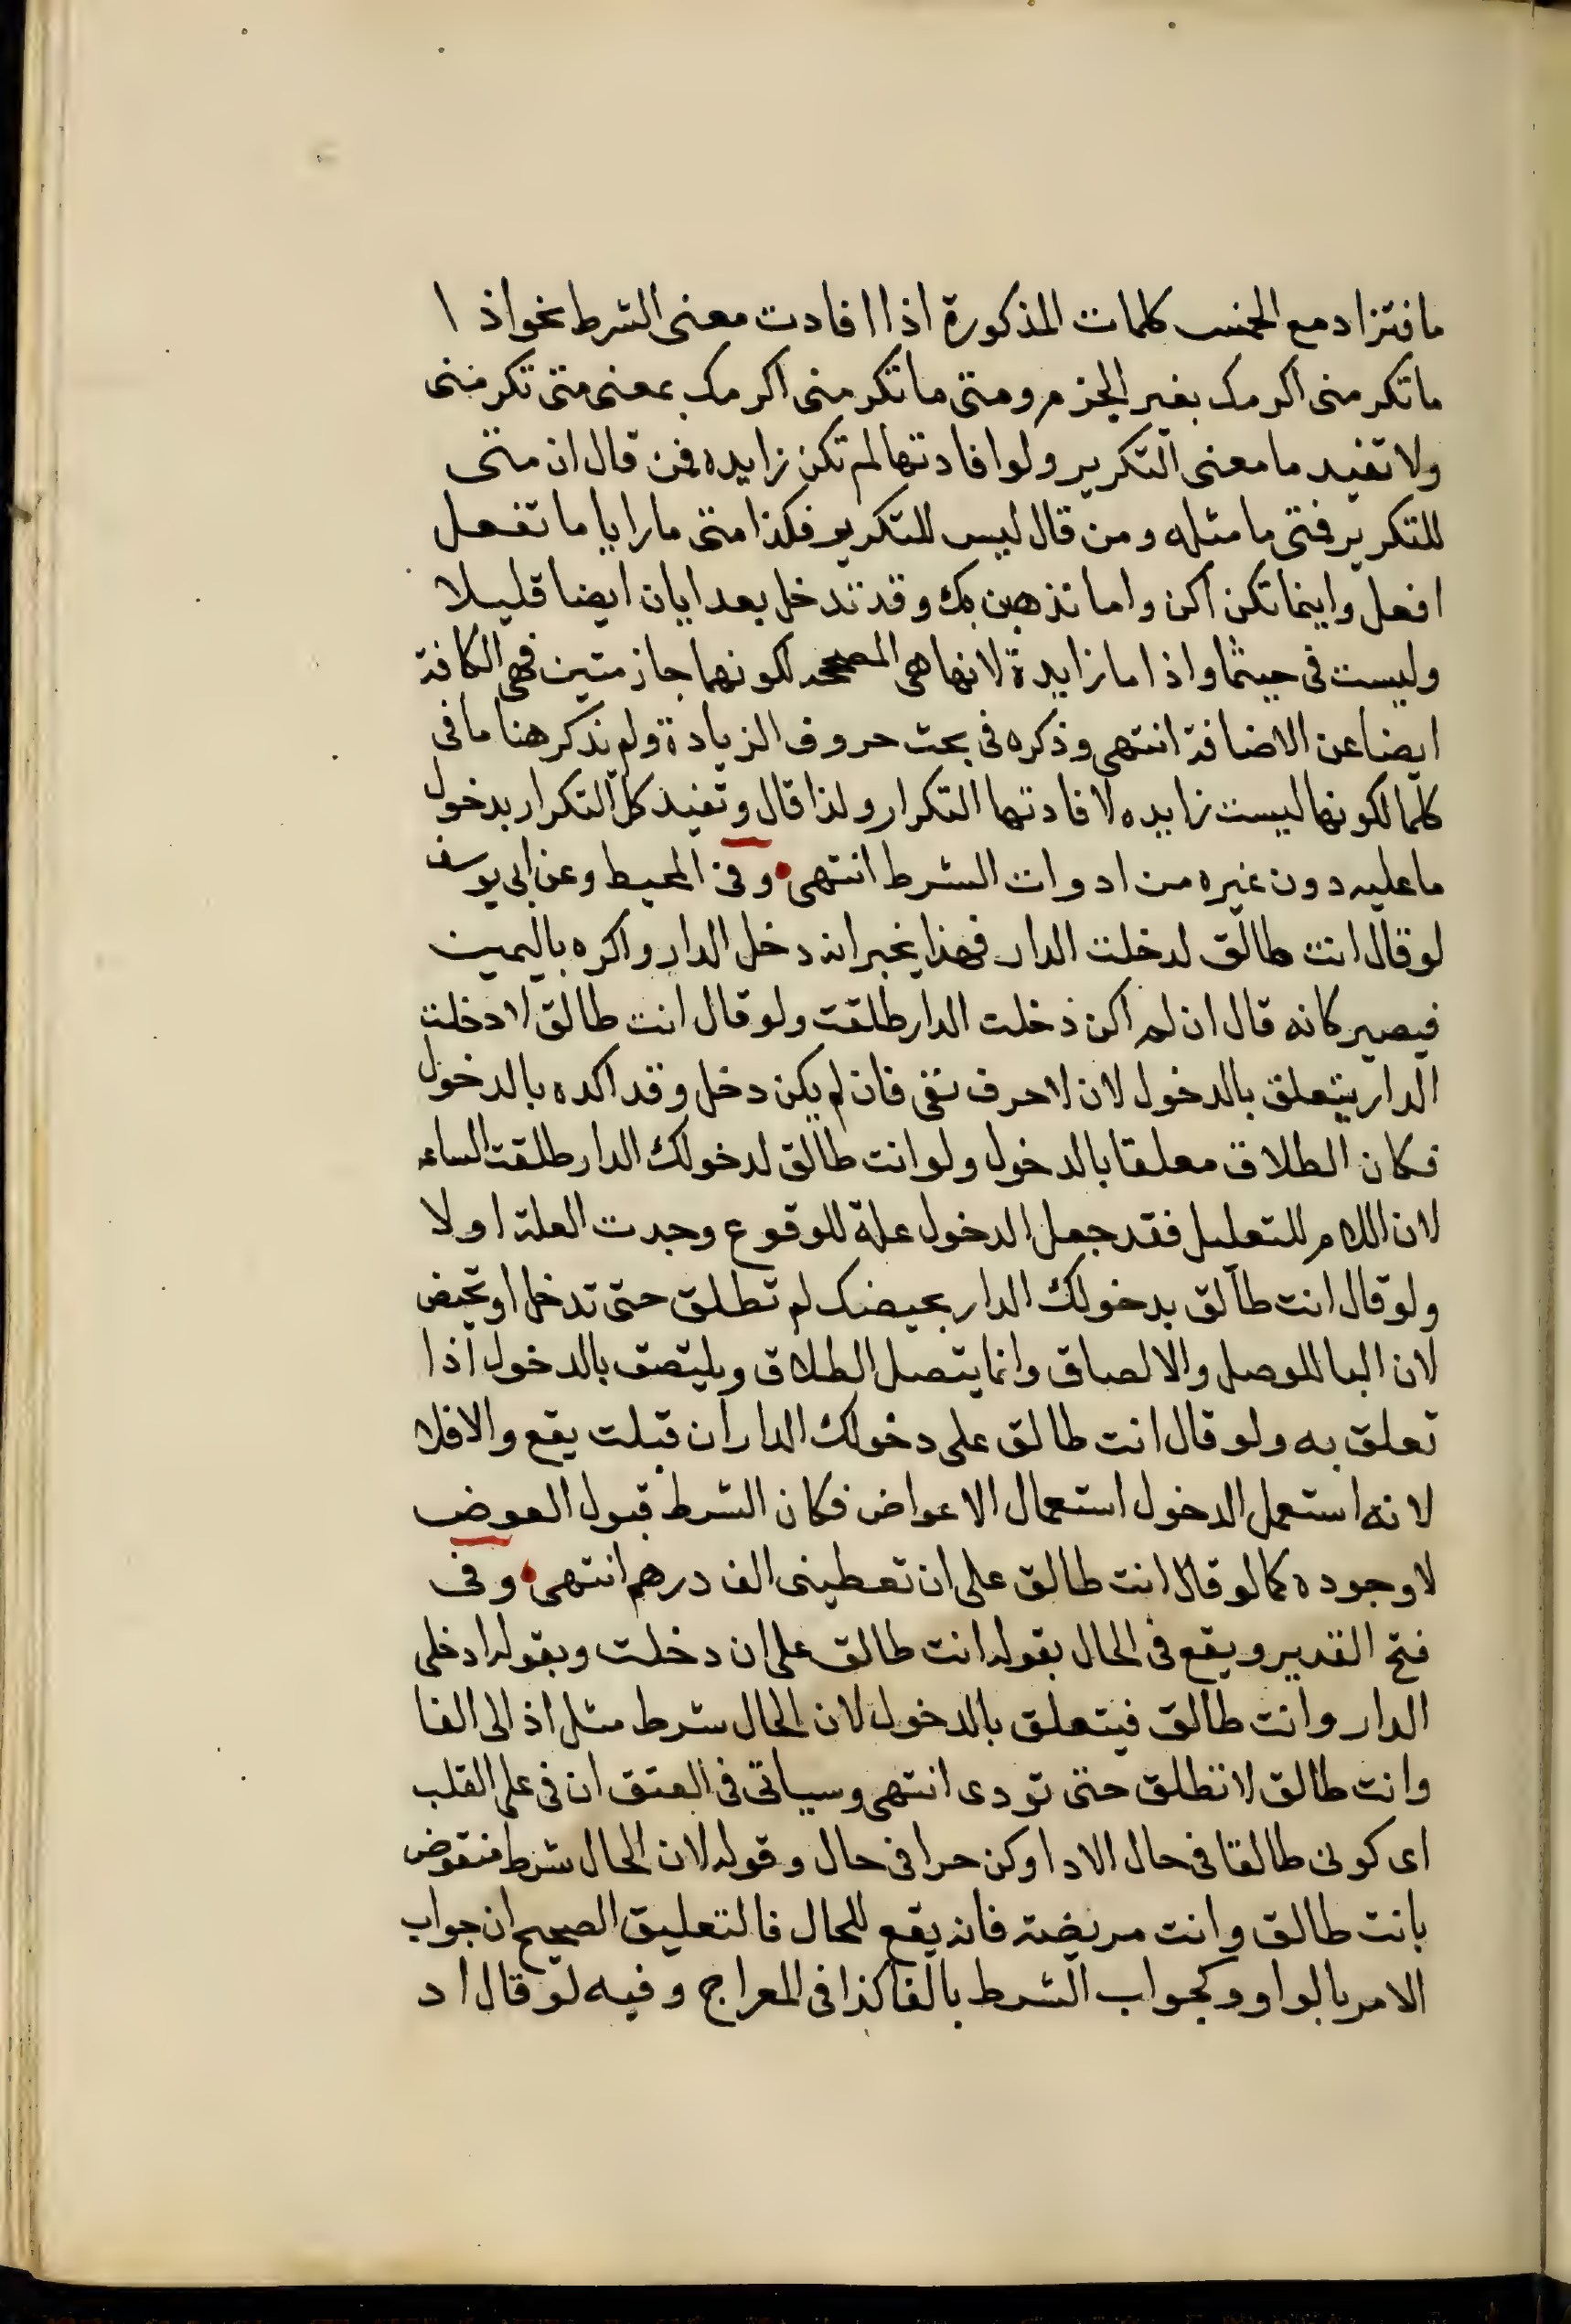 ما فتزاد مع الخمس كلمات المذكورة اذا افادت معنى الشرط نحو اذا
ما تكرمنى اكرمك بغير الجزم ومتى ما تكرمنى اكرمك بمعنى متى تكرمنى
ولا تفيد ما معنى التكرير ولو افادتها لم تكن زايده فمن قال ان متى
للتكرير فمتى ما مثله ومن قال ليس للتكرير فكذا متى ما رايا ما تفعل
افعل واينما تكن اكن واما تذهبن بك وقد تدخل بعد ايان ايضا قليلا
وليست فى حيثما واذا ما زايدة لانها هى المصححه لكونهما جازمتين فهى الكافة
ايضا عن الاضافة انتهى وذكره فى بحث حروف الزيادة ولم يذكر هنا ما فى
كلما لكونها ليست زايده لافادتها التكرار ولذا قال وتفيد كل التكرار بدخول
ما عليه دون غيره من ادوات الشرط انتهى وفى المحيط وعن ابى يوسف
لو قال انت طالق لدخلت الدار فهذا يخبر انه دخل الدار واكره باليمين
فيصير كانه قال ان لم اكن دخلت الدار طلقت ولو قال انت طالق لا دخلت
الدار يتعلق بالدخول لان لا حرف نفى فان لم يكن دخل وقد اكده بالدخول
فكان الطلاق معلقا بالدخول ولو انت طالق لدخولك الدار طلقت الساعه
لان اللام للتعليل فقد جعل الدخول علة للوقوع وجدت العلة اولا
ولو قال انت طالق بدخولك الدار بحيضك لم تطلق حتى تدخل او تحيض
لان البا للوصل والالصاق وانما يتصل الطلاق ويلتصق بالدخول اذا
تعلق به ولو قال انت طالق على دخولك الدار ان قبلت يقع والا فلا
لانه استعمل الدخول استعمال الاعواض فكان الشرط قبول العوض
لا وجوده كما لو قال انت طالق على ان تعطينى الف درهم انتهى وفى
فتح القدير ويقع فى الحال بقوله انت طالق على ان دخلت وبقوله ادخلى
الدار وانت طالق فيتعلق بالدخول لان الحال شرط مثل اد الى الفا
وانت طالق لا تطلق حتى تودى انتهى وسياتى فى العتق ان فى على القلب
اى كونى طالقا فى حال الادا وكن حرا فى حال وقوله لان الحال شرط منقوض
بانت طالق وانت مريضة فانه يقع للحال فالتعليق الصحيح ان جواب
الامر بالواو وكجواب الشرط بالفا كذا فى المعراج وفيه لو قال اد